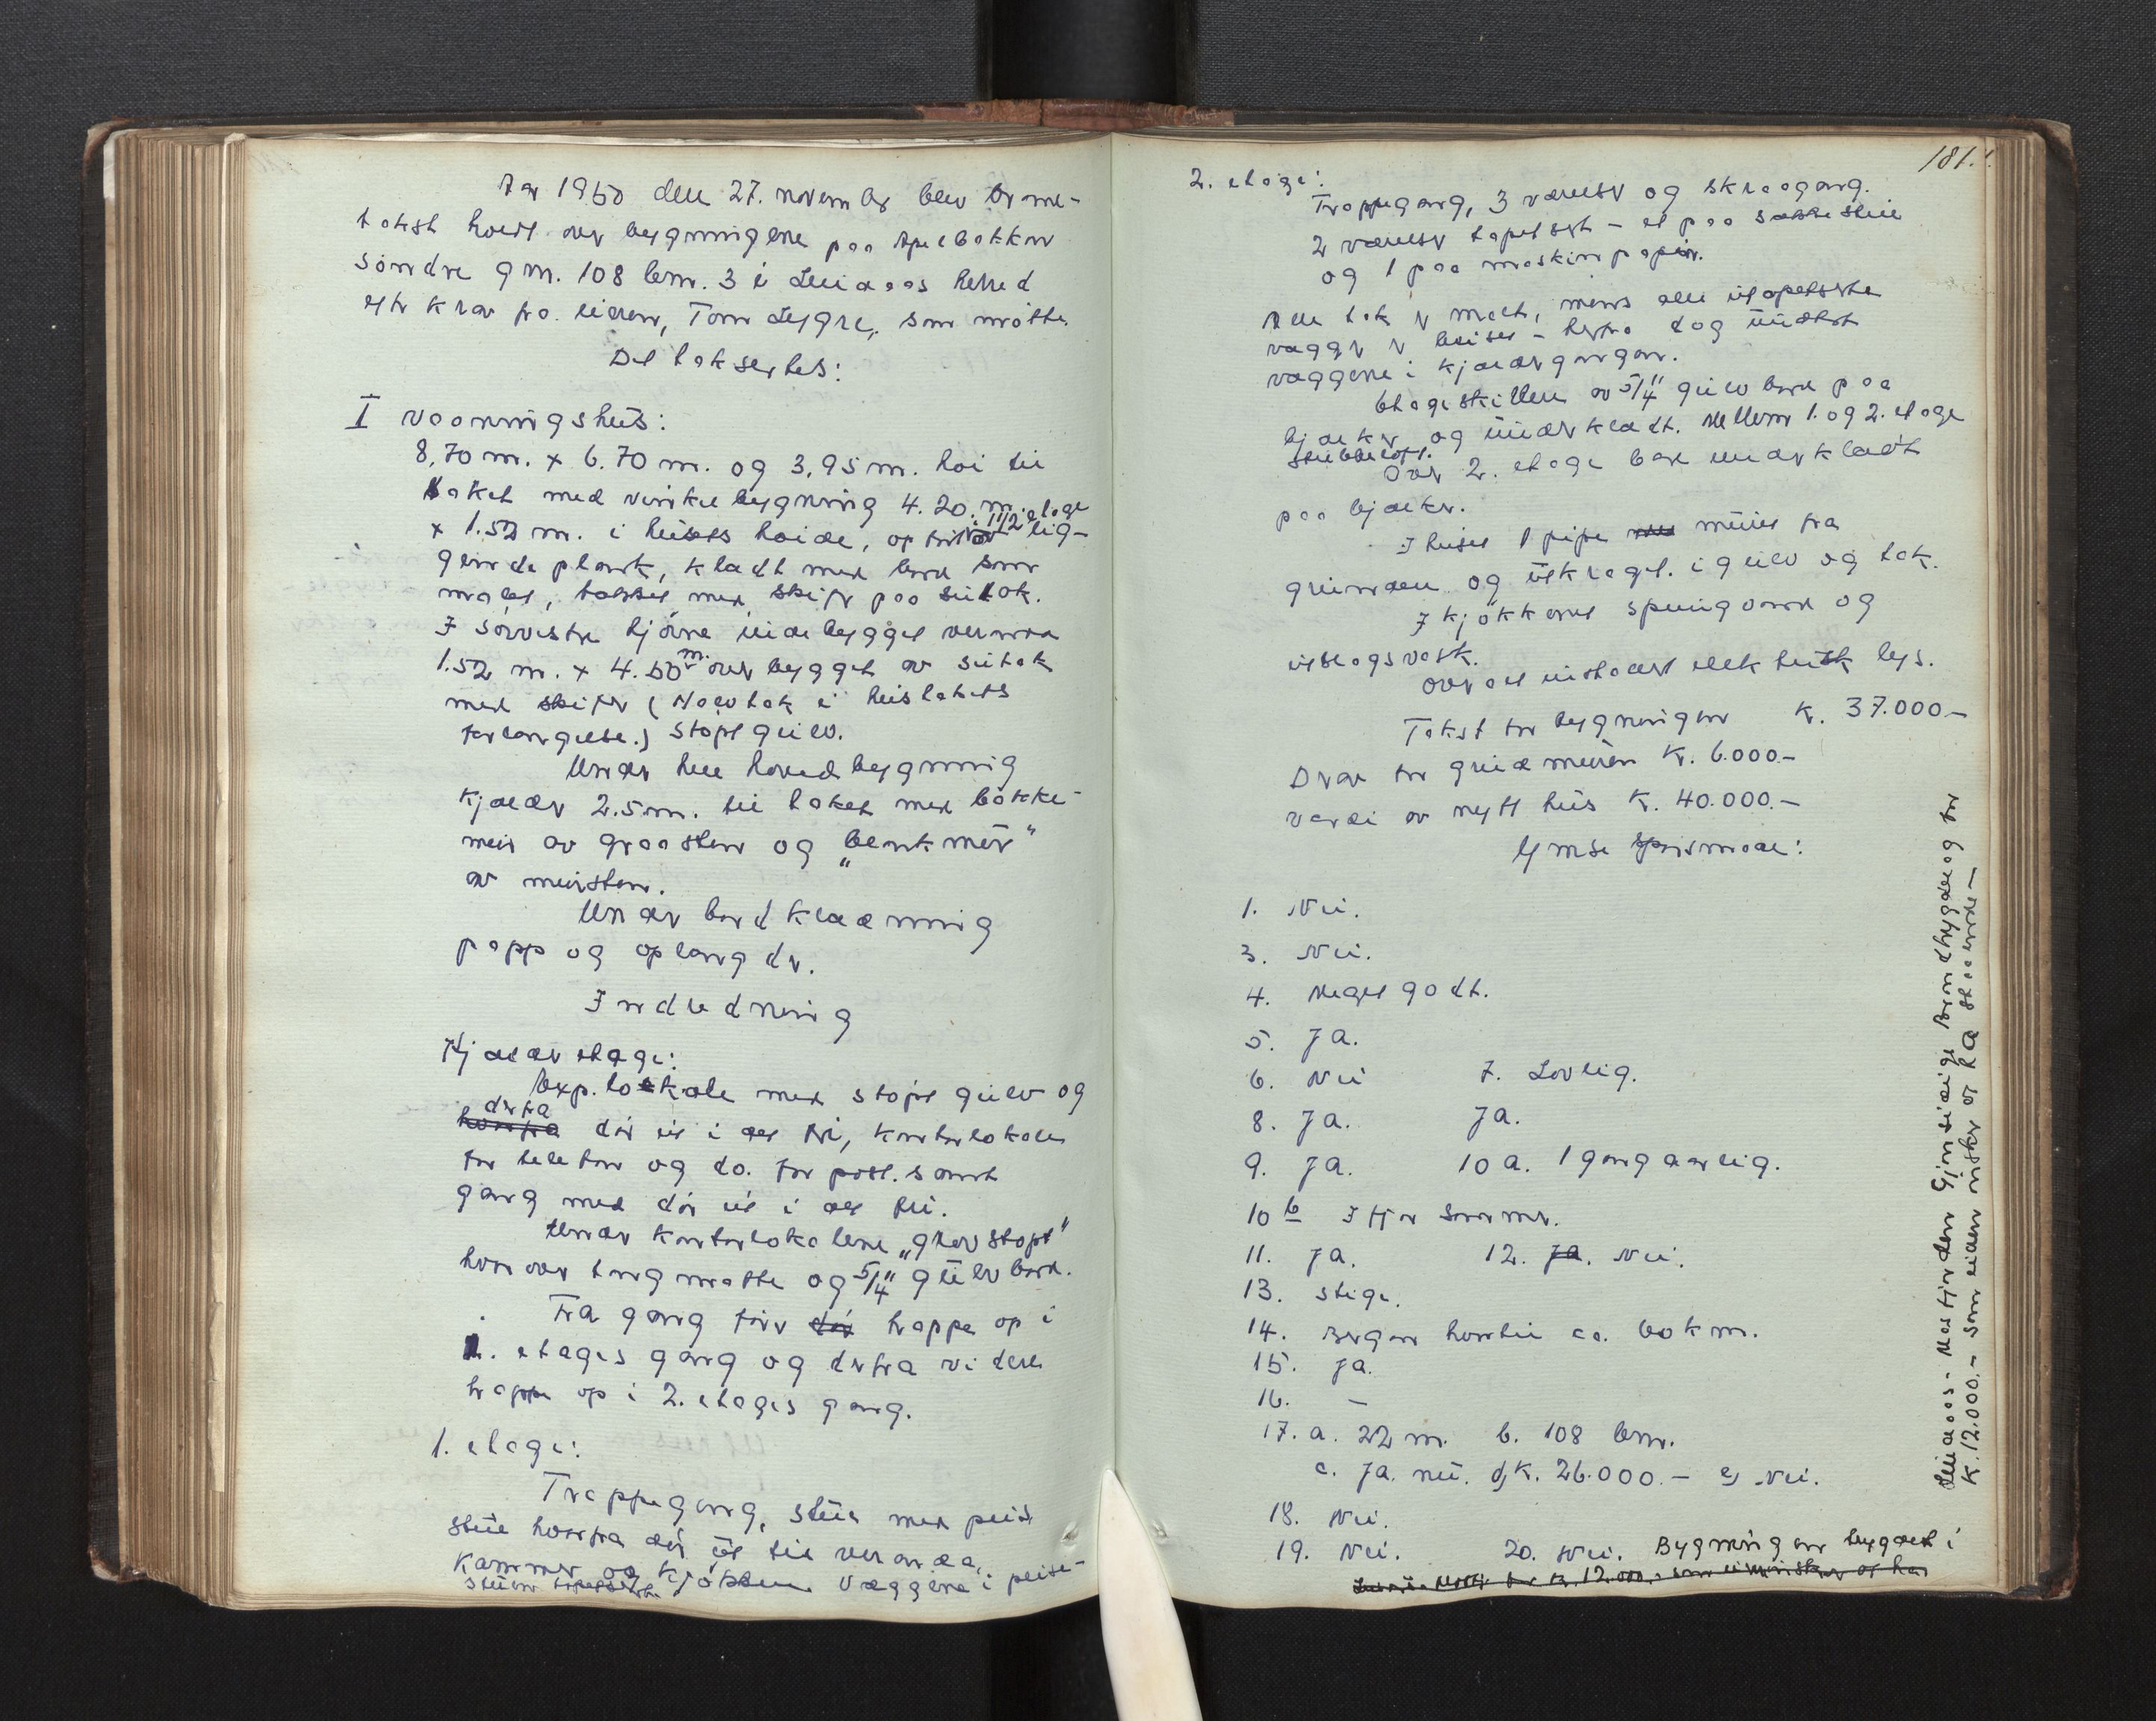 Aar 1950 den 27. november blev brann-
takst holdt over bygningene paa Apelbakken
söndre gnr. 108 bnr. 3 i Lindaas herred
efter krav fra eieren, Tom Lygre, som mötte.
Det taksertes:
I Vaaningshus:
8,70 m. x 6.70 m. og 3,95 m. höi til
taket med vinkelbygning 4.20 m.
x 1.52 m. i husets höide, opfört av 1 1/2 etage lig-
gende plank, kladt med bord som
malet, takket med skifer paa sutak.
I sörvestre hjörne innebygget veranda
1.52 m. x 4.50 m. overbygget av sutak
med skifer (Halvtak i hustakets
forlengelse.) Stöpt gulv.
Under hele hovedbygning
kjelder 2.5 m. til taket med bakke-
mur av graasten og „benkmur"
av mursten.
Under bordkledning
papp og oplengder.
Indredning
Kjelderetage:
Exp. lokale med stöpt gulv og
derfra
hvorfra dör ut i det fri, kontorlokale
for telefon og do. for post. samt
gang med dör ut i det fri.
Under kontorlokalene „grovstöpt"
hvorover tregmatte og 5/4" gulvbord.
Fra gang förer dör trappe op i
1. etages gang og derfra videre
trappe op i 2. etages gang.
1. etage:
Trappegang, stue med peis
stue hvorfra dör ut til veranda,
kammer og kjökken. Væggene i peise-
stuen tapetserte
181.
2. etage:
Trappegang, 3 værelser og skraagang.
2 værelser tapetsert - et paa sekkestrie
og 1 paa maskinpapir.
Alle tak er malt, mens alle utapetserte
vegger er beiset - herfra dog undtat
veggene i kjeldergangen.
Etageskillen av 5/4" gulvbord paa
bjelker og underkledt. Mellem 1. og 2. etage
stubbeloft.
Over 2. etage bare underkledt
paa bjelker.
I huset 1 pipe muret fra
grunden og utkraget i gulv og tak.
I kjökkenet springvand og
utslagsvask.
Overalt innstallert elektrisk lys.
Takst for bygningen kr. 37.000.-
Derav for grundmuren kr. 6.000.-
Verdi av nytt hus kr. 40.000.-
Ymse spörsmaal:
1. Nei.
3. Nei.
4. Meget godt.
5. Ja.
6. Nei 7. Lovlig.
8. Ja. Ja.
9. Ja. 10 a. 1 gang aarlig.
10 b I fjor sommer.
11. Ja. 12. Ja. Nei.
13. Stige.
14. Bergen hvortil ca. 60 km.
15. Ja.
16. -
17. a. 22 m. b. 108 bnr.
c. Ja. nei. d, kr. 26.000.- e, Nei.
18. Nei.
19. Nei. 20. Nei. Bygningen bygdet i
for kr. 12.000.- som eieren önsker at ha
Lindaas - Masfjorden Gjensidige Brandtrygdelag for
kr. 12.000.- som eieren önsker at ha staaende -